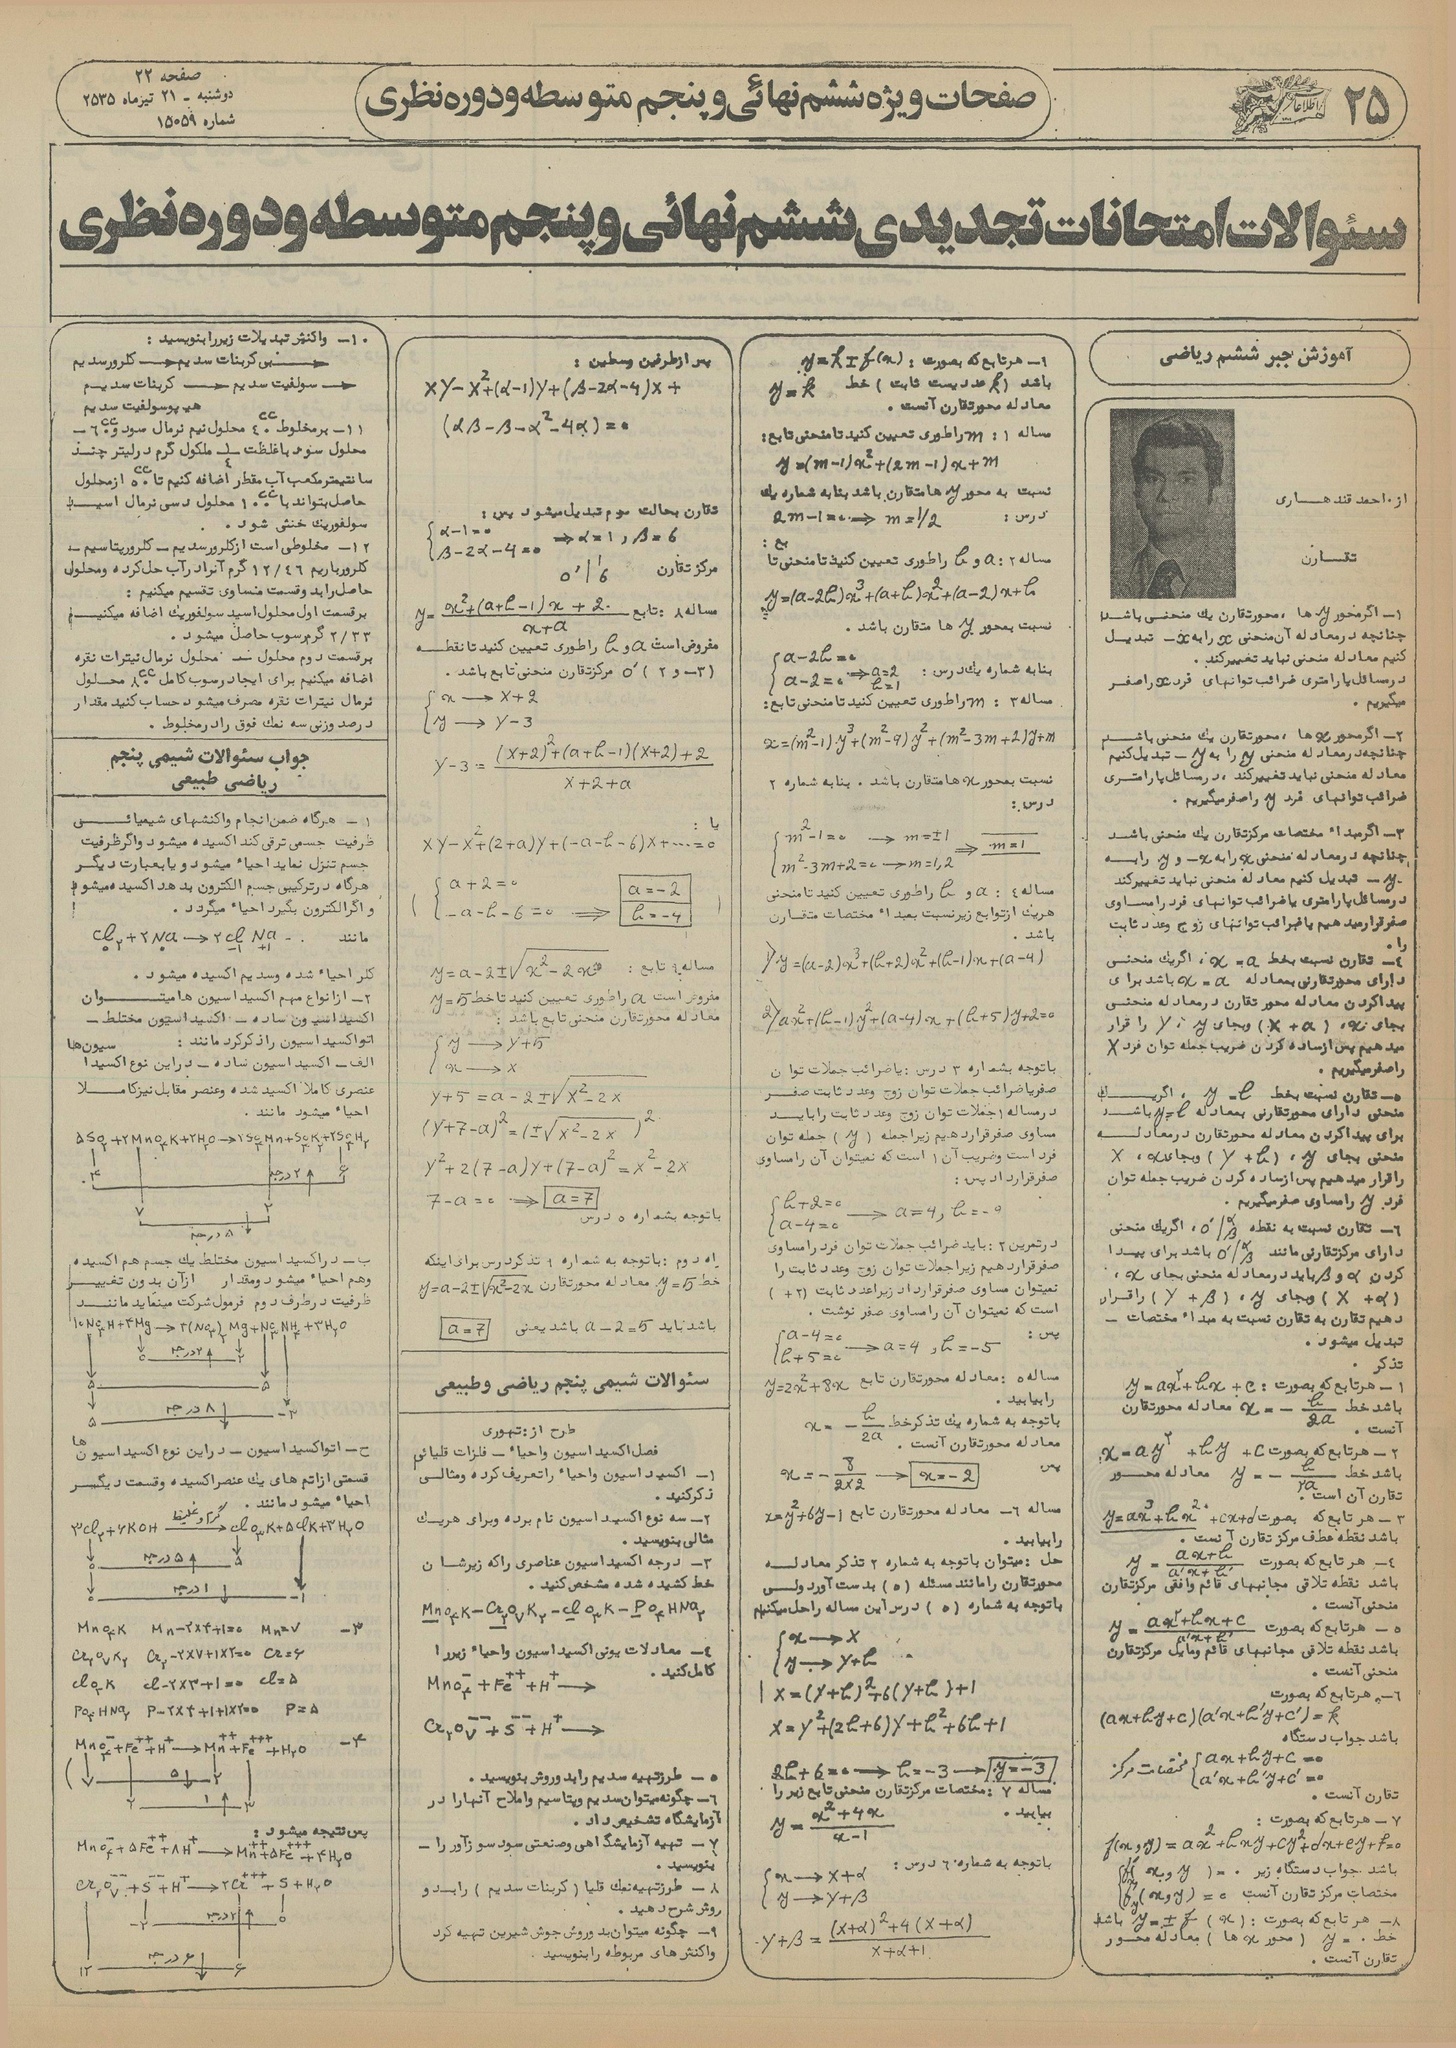 ۲۵
اطلاعات
صفحات ویژه ششم نهائی و پنجم متوسطه و دوره نظری
صفحه ۲۲
دوشنبه - ۲۱ تیرماه ۲۵۳۵
شماره ۱۵۰۵۹
سئوالات امتحانات تجدیدی ششم نهائی و پنجم متوسطه و دوره نظری
آموزش جبر ششم ریاضی
از: احمد قندهاری
تقارن
۱- اگر محور y ها ، محور تقارن یك منحنی باشد
چنانچه در معادله آن منحنی x را به x- تبدیل
کنیم معادله منحنی نباید تغییر کند.
در مسائل پارامتری ضرائب توانهای فرد x را صفر
میگیریم .
۲- اگر محور x ها ، محور تقارن یك منحنی باشد
چنانچه در معادله منحنی y را به y- تبدیل کنیم
معادله منحنی نباید تغییر کند ، در مسائل پارامتری
ضرائب توانهای فرد y را صفر میگیریم .
۳- اگر مبداء مختصات مرکز تقارن یك منحنی باشد
چنانچه در معادله منحنی x را به x- و y را به
y- تبدیل کنیم معادله منحنی نباید تغییر کند
در مسائل پارامتری یا ضرائب توانهای فرد را مساوی
صفر قرار میدهیم یا ضرائب توانهای زوج و عدد ثابت
را .
۴- تقارن نسبت بخط x=a ، اگر یك منحنی
دارای محور تقارنی بمعادله x=a باشد برای
پیدا کردن معادله محور تقارن در معادله منحنی
بجای x ، (X+a) و بجای y ، Y را قرار
میدهیم پس از ساده کردن ضریب جمله توان فرد X
را صفر میگیریم .
۵- تقارن نسبت بخط y=b ، اگر یك
منحنی دارای محور تقارنی بمعادله y=b باشد
برای پیدا کردن معادله محور تقارن در معادله
منحنی بجای y ، (Y+b) و بجای x ، X
را قرار میدهیم پس از ساده کردن ضریب جمله توان
فرد Y را مساوی صفر میگیریم .
۶- تقارن نسبت به نقطه O'|α β ، اگر یك منحنی
دارای مرکز تقارنی مانند O'|α β باشد برای پیدا
کردن α و β باید در معادله منحنی بجای x ،
(X+α) و بجای y ، (Y+β) را قرار
دهیم تقارن به تقارن نسبت به مبداء مختصات -
تبدیل میشود .
تذکر .
۱- هر تابع که بصورت : y=ax²+bx+c
باشد خط x = -b/2a معادله محور تقارن
آنست .
۲- هر تابع که بصورت x=ay²+by+c
باشد خط y = -b/۲a معادله محور
تقارن آن است .
۳- هر تابع که بصورت y=ax³+bx²+cx+d
باشد نقطه عطف مرکز تقارن آنست .
۴- هر تابع که بصورت y = (ax+b)/(a'x+b')
باشد نقطه تلاقی مجانبهای قائم و افقی مرکز تقارن
منحنی آنست .
۵- هر تابع که بصورت y = (ax²+bx+c)/(a'x+b')
باشد نقطه تلاقی مجانبهای قائم و مایل مرکز تقارن
منحنی آنست .
۶- هر تابع که بصورت
(ax+by+c)(a'x+b'y+c')=k
باشد جواب دستگاه
{ax+by+c=0
{a'x+b'y+c'=0 مختصات مرکز
تقارن آنست .
۷- هر تابع که بصورت :
f(x,y)=ax²+bxy+cy²+dx+ey+f=0
باشد جواب دستگاه زیر {f'x(x و y)=0
مختصات مرکز تقارن آنست {f'y(x و y)=0
۸- هر تابع که بصورت : y=±f(x) باشد
خط y=0 (محور x ها) معادله محور
تقارن آنست .
۹- هر تابع که بصورت : y=k±f(x)
باشد (k عددیست ثابت) خط y=k
معادله محور تقارن آنست .
مساله ۱ : m را طوری تعیین کنید تا منحنی تابع :
y=(m-1)x²+(2m-1)x+m
نسبت به محور y ها متقارن باشد بنا به شماره یك
درس : 2m-1=0 ⇒ m=1/2
مساله ۲ : a و b را طوری تعیین کنید تا منحنی تابع :
y=(a-2b)x³+(a+b)x²+(a-2)x+b
نسبت بمحور y ها متقارن باشد .
بنا به شماره یك درس : {a-2b=0
{a-2=0 ⇒ a=2 b=1
مساله ۳ : m را طوری تعیین کنید تا منحنی تابع :
x=(m²-1)y³+(m²-9)y²+(m²-3m+2)y+m
نسبت بمحور x ها متقارن باشد . بنا به شماره ۲
درس :
{m²-1=0 → m=±1
{m²-3m+2=0 → m=1,2 ⇒ m=1
مساله ۴ : a و b را طوری تعیین کنید تا منحنی
هر یك از توابع زیر نسبت بمبداء مختصات متقارن
باشد .
1) y=(a-2)x³+(b+2)x²+(b-1)x+(a-4)
2) ax²+(b-1)y²+(a-4)x+(b+5)y+2=0
با توجه بشماره ۳ درس : یا ضرائب جملات توان
صفر یا ضرائب جملات توان زوج و عدد ثابت صفر
در مساله ۱ جملات توان زوج و عدد ثابت را باید
مساوی صفر قرار دهیم زیرا جمله (y) جمله توان
فرد است و ضریب آن ۱ است که نمیتوان آن را مساوی
صفر قرار داد پس :
{b+2=0
{a-4=0 → a=4,
در تمرین ۲ : باید ضرائب جملات توان فرد را مساوی
صفر قرار دهیم زیرا جملات توان زوج و عدد ثابت را
نمیتوان مساوی صفر قرار داد زیرا عدد ثابت (۲+)
است که نمیتوان آن را مساوی صفر نوشت .
پس : {a-4=0
{b+5=0 → a=4 و b=-5
مساله ۵ : معادله محور تقارن تابع y=2x²+8x
را بیابید .
با توجه به شماره یك تذکر خط x = -b/2a
معادله محور تقارن آنست .
پس x = -8/2×2 → x=-2
مساله ۶- معادله محور تقارن تابع x=y²+6y-1
را بیابید .
حل : میتوان با توجه به شماره ۲ تذکر معادله
محور تقارن را مانند مسئله (۵) بدست آورد ولی
با توجه به شماره (۵) درس این مساله را حل میکنیم
{x → X
{y → Y+b
X=(Y+b)²+6(Y+b)+1
X=Y²+(2b+6)Y+b²+6b+1
2b+6=0 → b=-3 → y=-3
مساله ۷ : مختصات مرکز تقارن منحنی تابع زیر را
بیابید .
y = (x²+4x)/(x-1)
با توجه به شماره ۶ درس :
{x → X+α
{y → Y+β
Y+β = ((X+α)²+4(X+α))/(X+α+1)
پس از طرفین وسطین :
XY-X²+(α-1)Y+(β-2α-4)X+
(αβ-β-α²-4α)=0
تقارن بحالت سوم تبدیل میشود پس :
{α-1=0
{β-2α-4=0 ⇒ α=1 , β=6
مرکز تقارن O'|1 6
مساله ۸ : تابع y = (x²+(a+b-1)x+2)/(x+a)
مفروض است a و b را طوری تعیین کنید تا نقطه
(۳- و ۲) O' مرکز تقارن منحنی تابع باشد .
{x → X+2
{y → Y-3
Y-3 = ((X+2)²+(a+b-1)(X+2)+2)/(X+2+a)
یا :
XY-X²+(2+a)Y+(-a-b-6)X+.....=0
{a+2=0
{-a-b-6=0 ⇒ a=-2 b=-4
مساله ۹ تابع : y=a-2±√x²-2x
مفروض است a را طوری تعیین کنید تا خط y=5
معادله محور تقارن منحنی تابع باشد :
{y → Y+5
{x → X
Y+5=a-2±√X²-2X
(Y+7-a)²=(±√X²-2X)²
Y²+2(7-a)Y+(7-a)²=X²-2X
7-a=0 ⇒ a=7
با توجه بشماره ۵ درس
راه دوم : با توجه به شماره ۹ تذکر درس برای اینکه
خط y=5 معادله محور تقارن y=a-2±√x²-2x
باشد باید a-2=5 باشد یعنی a=7
سئوالات شیمی پنجم ریاضی و طبیعی
طرح از : تهوری
فصل اکسیداسیون و احیاء - فلزات قلیائی
۱- اکسیداسیون و احیاء را تعریف کرده و مثالی
ذکر کنید .
۲- سه نوع اکسیداسیون نام برده و برای هر یك
مثالی بنویسید .
۳- درجه اکسیداسیون عناصری را که زیرشان
خط کشیده شده مشخص کنید .
MnO۴K - Cr۲O۷K۲ - ClO۳K - PO۴HNa۲
۴- معادلات یونی اکسیداسیون و احیاء زیر را
کامل کنید .
MnO۴⁻ + Fe⁺⁺ + H⁺ →
Cr۲O۷⁻⁻ + S⁻⁻ + H⁺ →
۵- طرز تهیه سدیم را بدو روش بنویسید .
۶- چگونه میتوان سدیم و پتاسیم و املاح آنها را در
آزمایشگاه تشخیص داد .
۷- تهیه آزمایشگاهی و صنعتی سود سوزآور را -
بنویسید .
۸- طرز تهیه نمك قلیا (کربنات سدیم) را بدو
روش شرح دهید .
۹- چگونه میتوان بدو روش جوش شیرین تهیه کرد
واکنش های مربوطه را بنویسید .
۱۰- واکنش تبدیلات زیر را بنویسید :
کلرور سدیم → بی کربنات سدیم →
کربنات سدیم → سولفیت سدیم →
هیپوسولفیت سدیم
۱۱- بر مخلوط ۴۰cc محلول نیم نرمال سود و ۶۰cc -
محلول سود با غلظت ۱/۴ ملکول گرم در لیتر چند
سانتیمتر مکعب آب مقطر اضافه کنیم تا ۵۰cc از محلول
حاصل بتواند با ۱۰۰cc محلول دسی نرمال اسید
سولفوریك خنثی شود .
۱۲- مخلوطی است از کلرور سدیم - کلرور پتاسیم -
کلرور باریم ۱۲/۴۶ گرم آنرا در آب حل کرده و محلول
حاصل را بدو قسمت مساوی تقسیم میکنیم :
بر قسمت اول محلول اسید سولفوریك اضافه میکنیم
۲/۳۳ گرم رسوب حاصل میشود .
بر قسمت دوم محلول محلول نرمال نیترات نقره
اضافه میکنیم برای ایجاد رسوب کامل ۸۰cc محلول
نرمال نیترات نقره مصرف میشود حساب کنید مقدار
درصد وزنی سه نمك فوق را در مخلوط .
جواب سئوالات شیمی پنجم
ریاضی طبیعی
۱- هرگاه ضمن انجام واکنشهای شیمیائی
ظرفیت جسمی ترقی کند اکسیده میشود و اگر ظرفیت
جسم تنزل نماید احیاء میشود و یا بعبارت دیگر
هرگاه در ترکیبی جسم الکترون بدهد اکسیده میشود
و اگر الکترون بگیرد احیاء میگردد .
مانند Cl۲+۲Na → ۲Cl Na
کلر احیاء شده و سدیم اکسیده میشود .
۲- از انواع مهم اکسیداسیون ها میتوان
اکسیداسیون ساده - اکسیداسیون مختلط -
اتواکسیداسیون را ذکر کرد مانند :
الف - اکسیداسیون ساده - در این نوع اکسیداسیون‌ها
عنصری کاملا اکسید شده و عنصر مقابل نیز کاملا
احیاء میشود مانند .
۵SO۲+۲MnO۴K+۲H۲O → ۲SO۴Mn+SO۴K۲+۲SO۴H۲
۲ درجه
۴ ۶
۷ ۲
۵ درجه
ب - در اکسیداسیون مختلط یك جسم هم اکسیده
وهم احیاء میشود و مقدار ازآن بدون تغییر
ظرفیت در طرف دوم فرمول شرکت مینماید مانند
۱۰NO۳H+۴Mg → ۴(NO۳)۲Mg+NO۳NH۴+۳H۲O
۲ درجه
۰ ۲
۵ ۵
۸ درجه
۵ ۳-
ح - اتواکسیداسیون - در این نوع اکسیداسیون ها
قسمتی از اتم های یك عنصر اکسیده و قسمت دیگر
احیاء میشود مانند .
۳Cl۲+۶KOH گرم و غلیظ → ClO۳K+۵ClK+۳H۲O
۵ درجه
۰ ۵
۱ درجه
۰ ۱-
۳- MnO۴K Mn-۲×۴+۱=۰ Mn=۷
Cr۲O۷K۲ Cr۲-۲×۷+۱×۲=۰ Cr=۶
ClO۳K Cl-۲×۳+۱=۰ Cl=۵
PO۴HNa۲ P-۲×۴+۱+۱×۲=۰ P=۵
۴- MnO۴⁻+Fe⁺⁺+H⁺ → Mn⁺⁺+Fe⁺⁺⁺+H۲O
۷ ۵ ۲
۲ ۱ ۳
پس نتیجه میشود :
MnO۴⁻+۵Fe⁺⁺+۸H⁺ → Mn⁺⁺+۵Fe⁺⁺⁺+۴H۲O
Cr۲O۷⁻⁻+S⁻⁻+H⁺ → ۲Cr⁺⁺⁺+S+H۲O
۲ درجه
۲- ۰
۶ درجه
۱۲ ۶